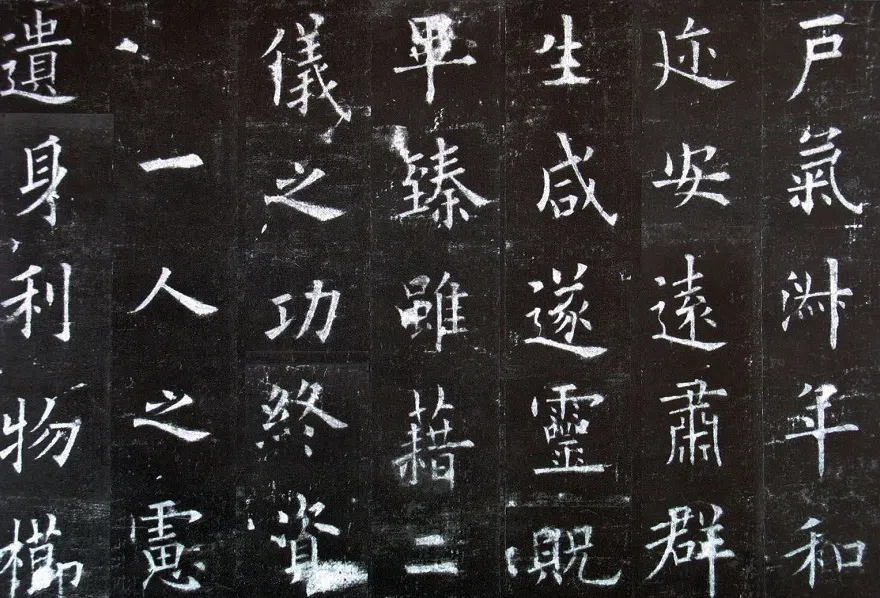 戶氣淑年和
迩安遠肅群
生咸遂靈貺
畢臻雖藉二
儀之功終資
一人之慮
遺身利物櫛